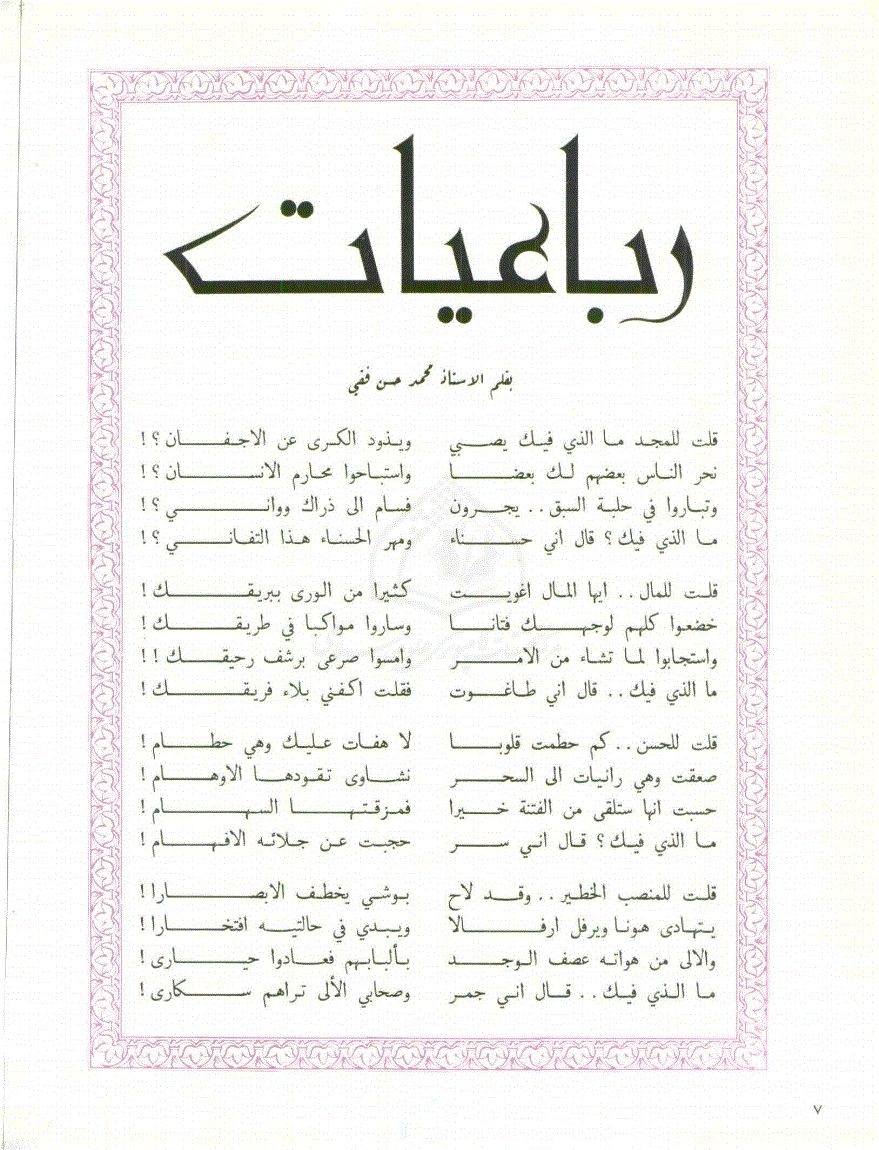 رباعيات
بقلم الاستاذ محمد حسن فقي
قلت للمجد ما الذي فيك يصبي ويذود الكرى عن الاجفان ؟ !
نحر الناس بعضهم لك بعضا واستباحوا محارم الانسان ؟ !
وتباروا في حلبة السبق . . يجرون فسام الى ذراك وواني ؟ !
ما الذي فيك ؟ قال اني حسناء ومهر الحسناء هذا التفاني ؟ !
قلت للمال . . ايها المال اغويت كثيرا من الورى ببريقك !
خضعوا كلهم لوجهك فتانا وساروا مواكبا في طريقك !
واستجابوا لما تشاء من الامر وامسوا صرعى برشف رحيقك ! !
ما الذي فيك . . قال اني طاغوت فقلت اكفني بلاء فريقك !
قلت للحسن . . كم حطمت قلوبا لا هفات عليك وهي حطام !
صعقت وهي رانيات الى السحر نشاوى تقودها الاوهام !
حسبت انها ستلقى من الفتنة خيرا فمزقتها السهام !
ما الذي فيك ؟ قال اني سر حجبت عن جلائه الافهام !
قلت للمنصب الخطير . . وقد لاح بوشي يخطف الابصارا !
يتهادى هونا ويرفل ارفالا ويبدي في حالتيه افتخارا !
والالى من هواته عصف الوجد بألبابهم فعادوا حيارى !
ما الذي فيك . . قال اني جمر وصحابي الألى تراهم سكارى !
٧